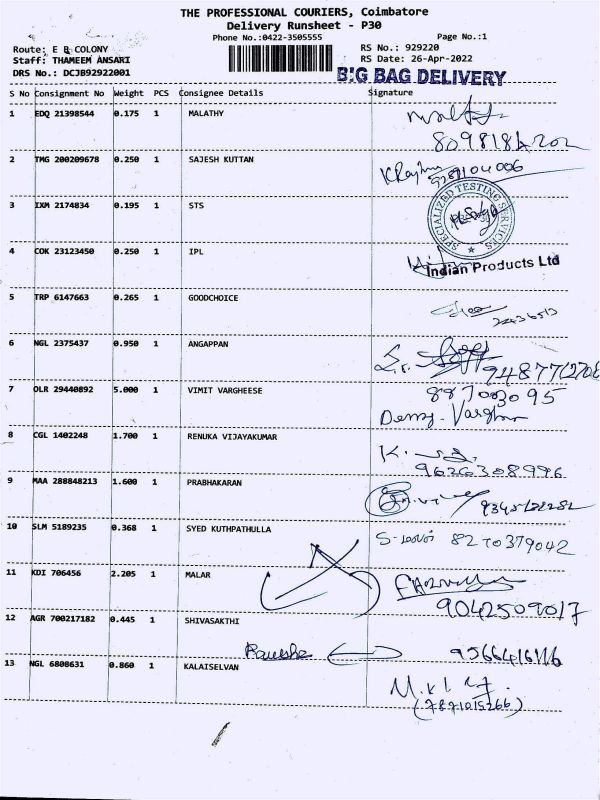 THE PROFESSIONAL COURIERS, Coimbatore
Delivery Runsheet - P30
Phone No.:0422-3505555
Page No.:1
Route: E B COLONY
RS No.: 929220
Staff: THAMEEM ANSARI
RS Date: 26-Apr-2022
DRS No.: DCJB92922001
BIG BAG DELIVERY
S No Consignment No Weight PCS Consignee Details Signature
1 EDQ 21398544 0.175 1 MALATHY
2 TMG 200209678 0.250 1 SAJESH KUTTAN
3 IXM 2174834 0.195 1 STS
SPECIALIZED TESTING SERVICES
4 COK 23123450 0.250 1 IPL
Indian Products Ltd
5 TRP 6147663 0.265 1 GOODCHOICE
6 NGL 2375437 0.950 1 ANGAPPAN
7 OLR 29440892 5.000 1 VIMIT VARGHEESE
8 CGL 1402248 1.700 1 RENUKA VIJAYAKUMAR
9626308996
9 MAA 288848213 1.600 1 PRABHAKARAN
10 SLM 5189235 0.368 1 SYED KUTHPATHULLA
8270379042
11 KDI 706456 2.205 1 MALAR
9042509017
12 AGR 700217182 0.445 1 SHIVASAKTHI
13 NGL 6808631 0.860 1 KALAISELVAN
(7871015266)